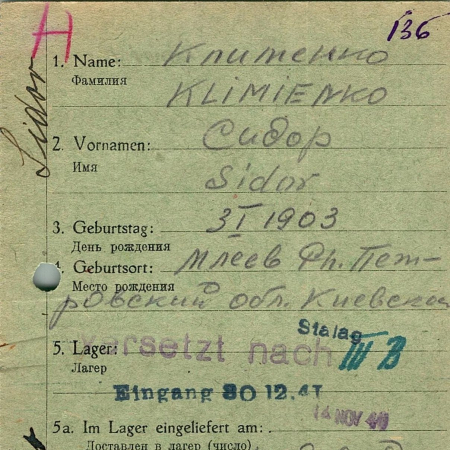 H
136
Sidor
1. Name: Клименко
Фамилия
KLIMIENKO
2. Vornamen: Сидор
Имя
Sidor
3. Geburtstag: 3 I 1903
День рождения
4. Geburtsort: Млеев Рн. Пет-
Место рождения
ровский обл. Киевская
Stalag
5. Lager: Versetzt nach III B
Лагер
Eingang 30 12. 41
14 NOV 44
5a. Im Lager eingeliefert am:
Доставлен в лагер (число)